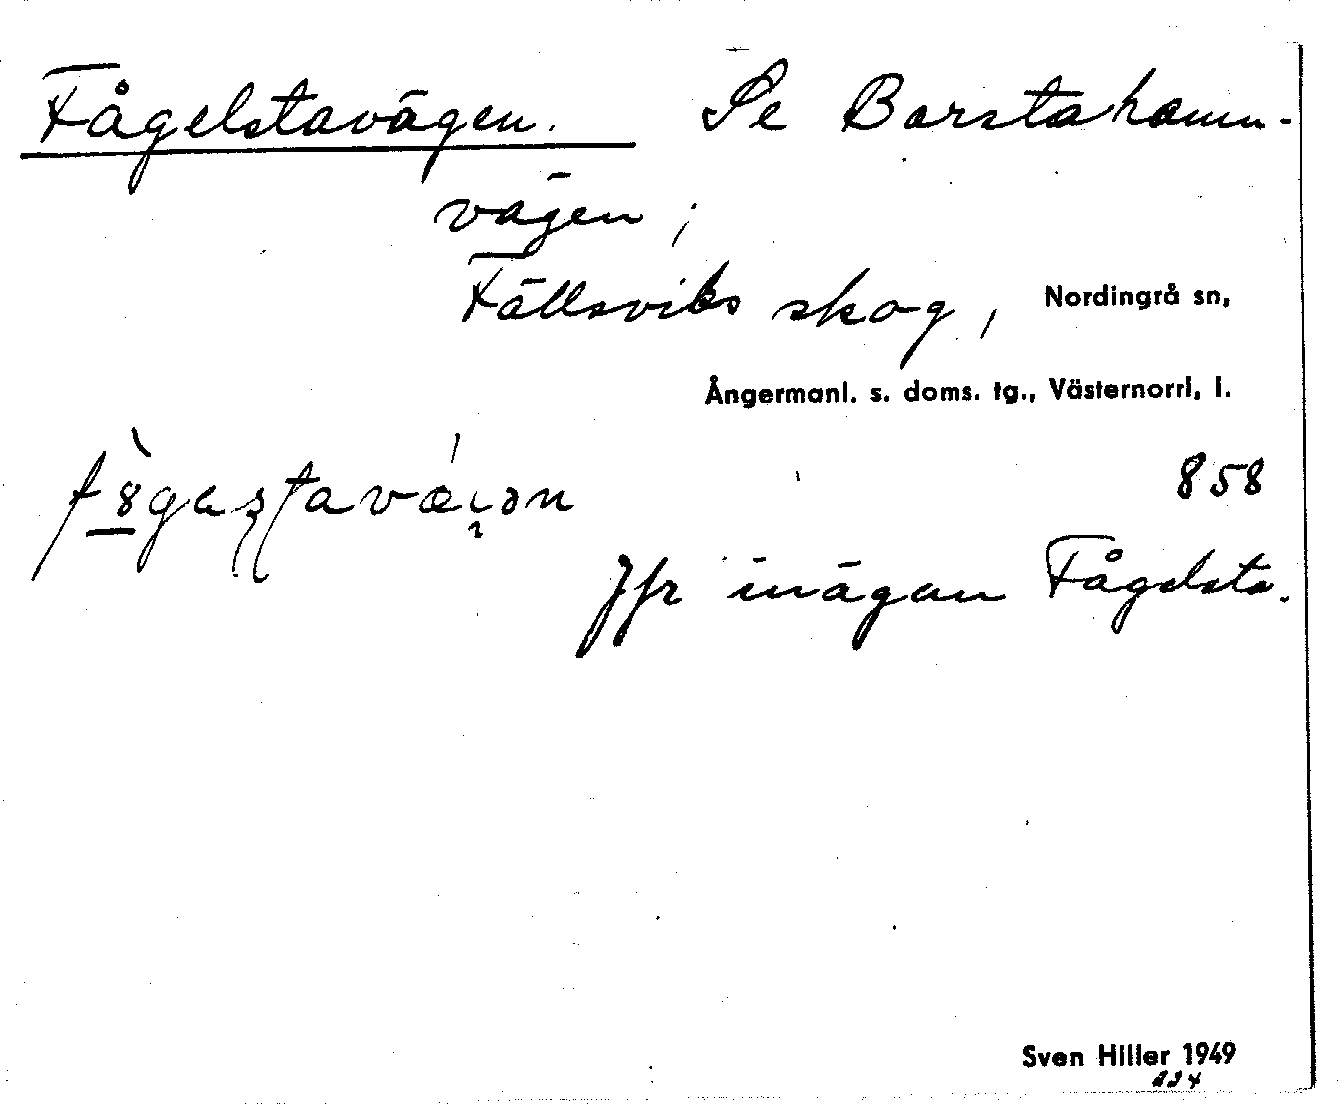 Fågelstavägen. Se Barstahamn-
vägen,
Fällsviks skog, Nordingrå sn,
Ångermanl. s. doms. tg., Västernorrl, l.
858
Jfr inägan Fågelsta.
Sven Hiller 1949